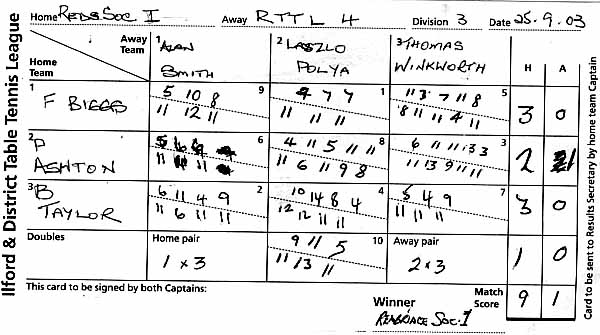 Ilford & District Table Tennis League
Home Reds Soc I Away RTTL 4 Division 3 Date 25.9.03
Away Team
Home Team
1 ALAN SMITH
2 LASZLO POLYA
3 THOMAS WINKWORTH
H A
1 F BIGGS
5 10 8 9
11 12 11
4 7 7 1
11 11 11
11 3 7 11 8 5
8 11 11 4 11
3 0
2 P ASHTON
6
4 11 5 11 11 8
11 6 11 9 8
6 11 11 33 3
11 13 9 11 11
2
3 B TAYLOR
6 11 4 9 2
11 6 11 11
10 14 8 4 4
12 12 11 11
5 4 9 7
11 11 11
3 0
Doubles
Home pair
1 x 3
9 11 5 10
11 13 11
Away pair
2 x 3
1 0
This card to be signed by both Captains:
Winner
Match Score
9 1
Soc. I
Card to be sent to Results Secretary by home team Captain